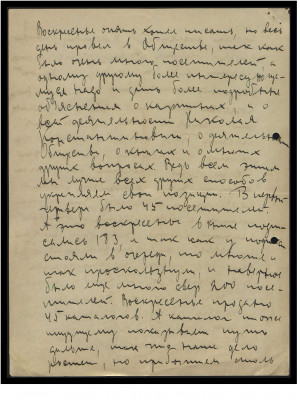 Воскресенье опять хотел писать, но весь
день провел в Обществе, так как
было очень много посетителей, а
одному другому более интересующ-
муся надо и дать более подробные
объяснения о картинах, и о
всей деятельности Николая
Константиновича, о деятельности
Общества, о книгах и о многих
других вопросах. Ведь всем этим
мы лучше всех других способов
укрепляем свои позиции. В первый
четверг было 45 посетителей.
А это воскресенье в книге подпи-
сались 183, и так как у
стояли в очередь, то многие и
так проскользнули, и наверное
было еще много сверх 200 посе-
тителей. Воскресенье продано
45 каталогов. А каталог тоже
ищущему показывает путь
дальше, так что наше дело
растет, но прибавится столь